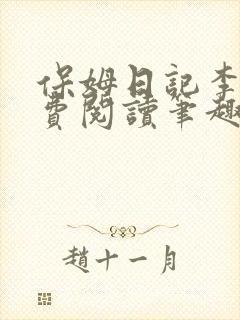 保姆日記李
費閱讀筆趣
趙十一月